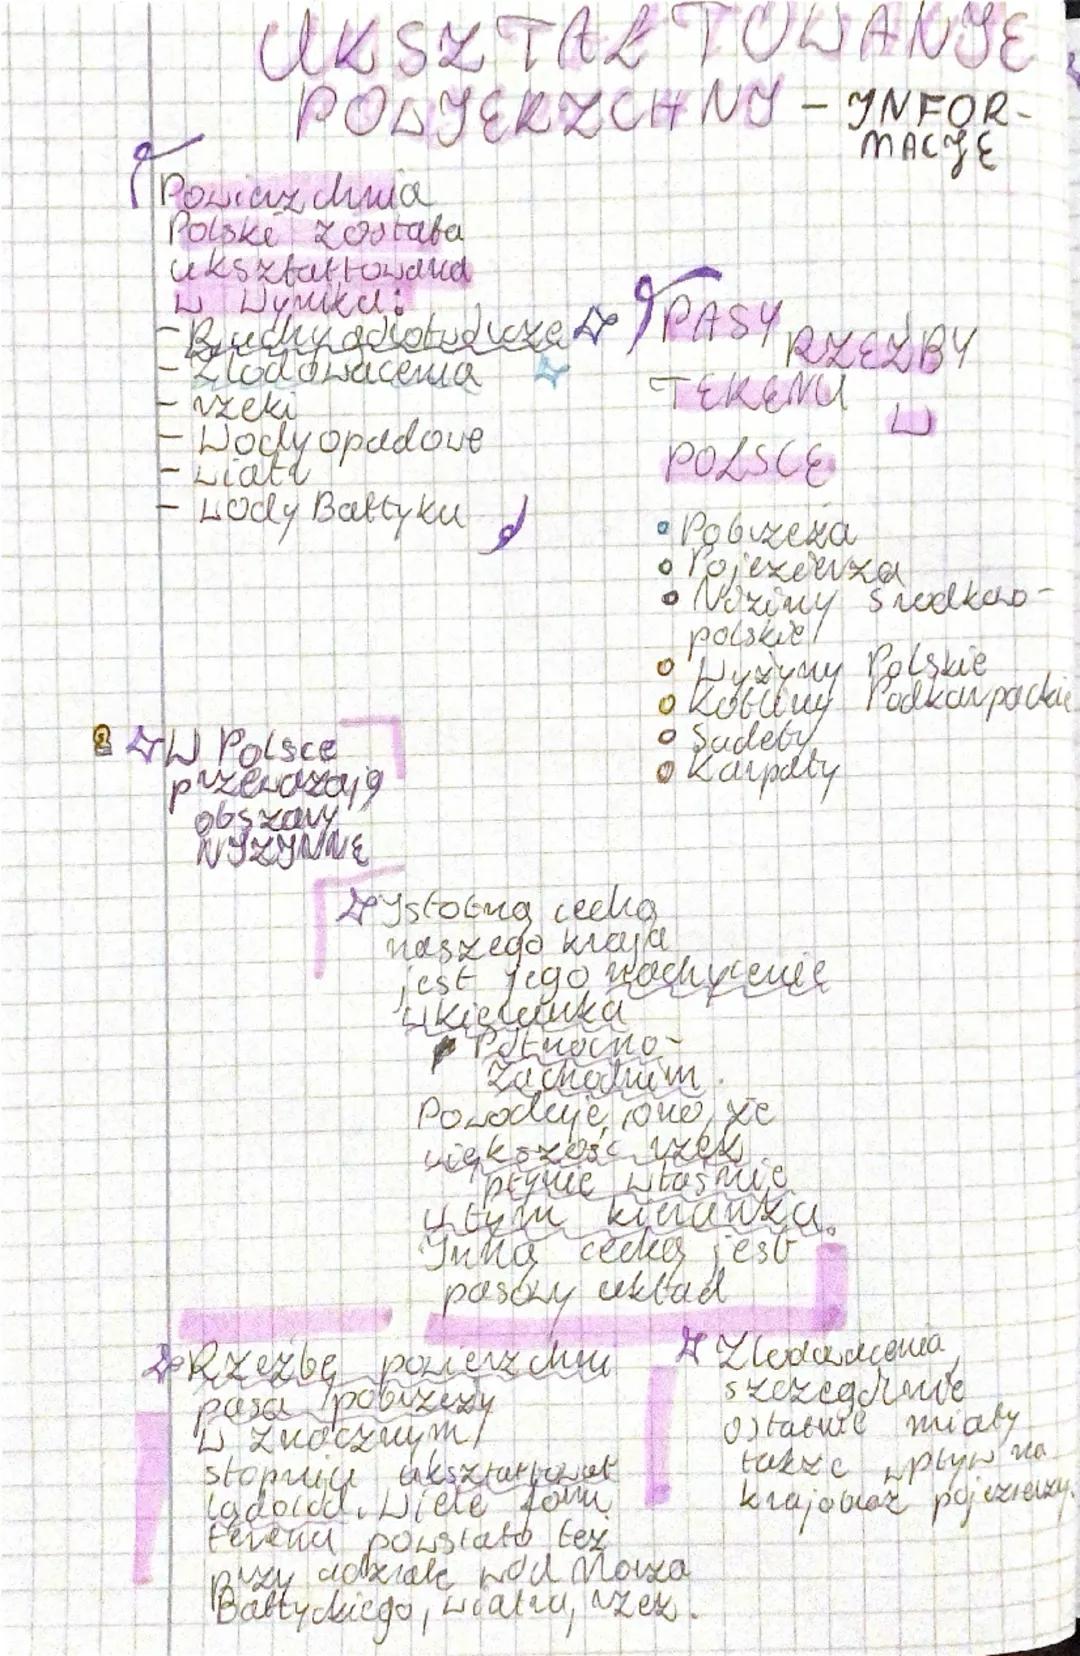 UKSZTAŁTOWANIE
POWIERZCHNI - INFOR-
MACJE
Powierzchnia
Polski została
ukształtowana
w wyniku:
- Ruchy górotwórcze
- Zlodowacenia
- rzeki
- Wody opadowe
- wiatr
- wody Bałtyku
PASY RZEŹBY
TERENU W
POLSCE
Pobrzeża
Pojezierza
Niziny środkowo-
polskie
Wyżyny Polskie
Kotliny Podkarpackie
Sudety
Karpaty
W Polsce
przeważają
obszary
NIZINNE
Istotną cechą
naszego kraju
jest jego nachylenie
w kierunku
Północno-
Zachodnim.
Powoduje ono, że
większość rzek
płynie właśnie
w tym kierunku.
Inną cechą jest
pasowy układ
Rzeźbę powierzchni
pasa pobrzeży
w znacznym
stopniu ukształtował
lądolód. Wiele form
terenu powstało też
przy udziale wód Morza
Bałtyckiego, wiatru, rzek.
Zlodowacenia,
szczególnie
ostatnie miały
także wpływ na
krajobraz pojezierzy.